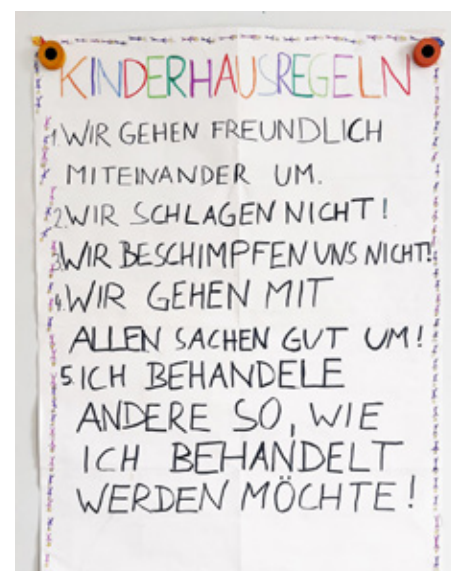 KINDERHAUSREGELN
1. WIR GEHEN FREUNDLICH
MITEINANDER UM.
2. WIR SCHLAGEN NICHT!
3. WIR BESCHIMPFEN UNS NICHT!
4. WIR GEHEN MIT
ALLEN SACHEN GUT UM!
5. ICH BEHANDELE
ANDERE SO, WIE
ICH BEHANDELT
WERDEN MÖCHTE!